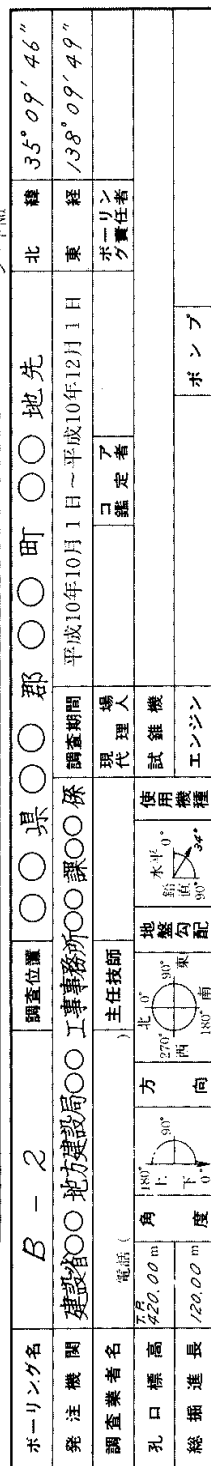 ボーリング名 B-2 調査位置 〇〇県〇〇郡〇〇町〇〇地先 北緯 35°09′46″
発注機関 建設省〇〇地方建設局〇〇工事事務所〇〇課〇〇係 調査期間 平成10年10月1日～平成10年12月1日 東経 138°09′49″
調査業者名 電話( ) 主任技師 現場代理人 コア鑑定者 ボーリング責任者
孔口標高 T.P. 420.00m 角度 180° 上 90° 下 0° 方向 北 0° 90° 東 南 180° 西 270° 地盤勾配 水平 0° 鉛直 90° 34° 使用機種 試錐機
総掘進長 120.00m エンジン ポンプ